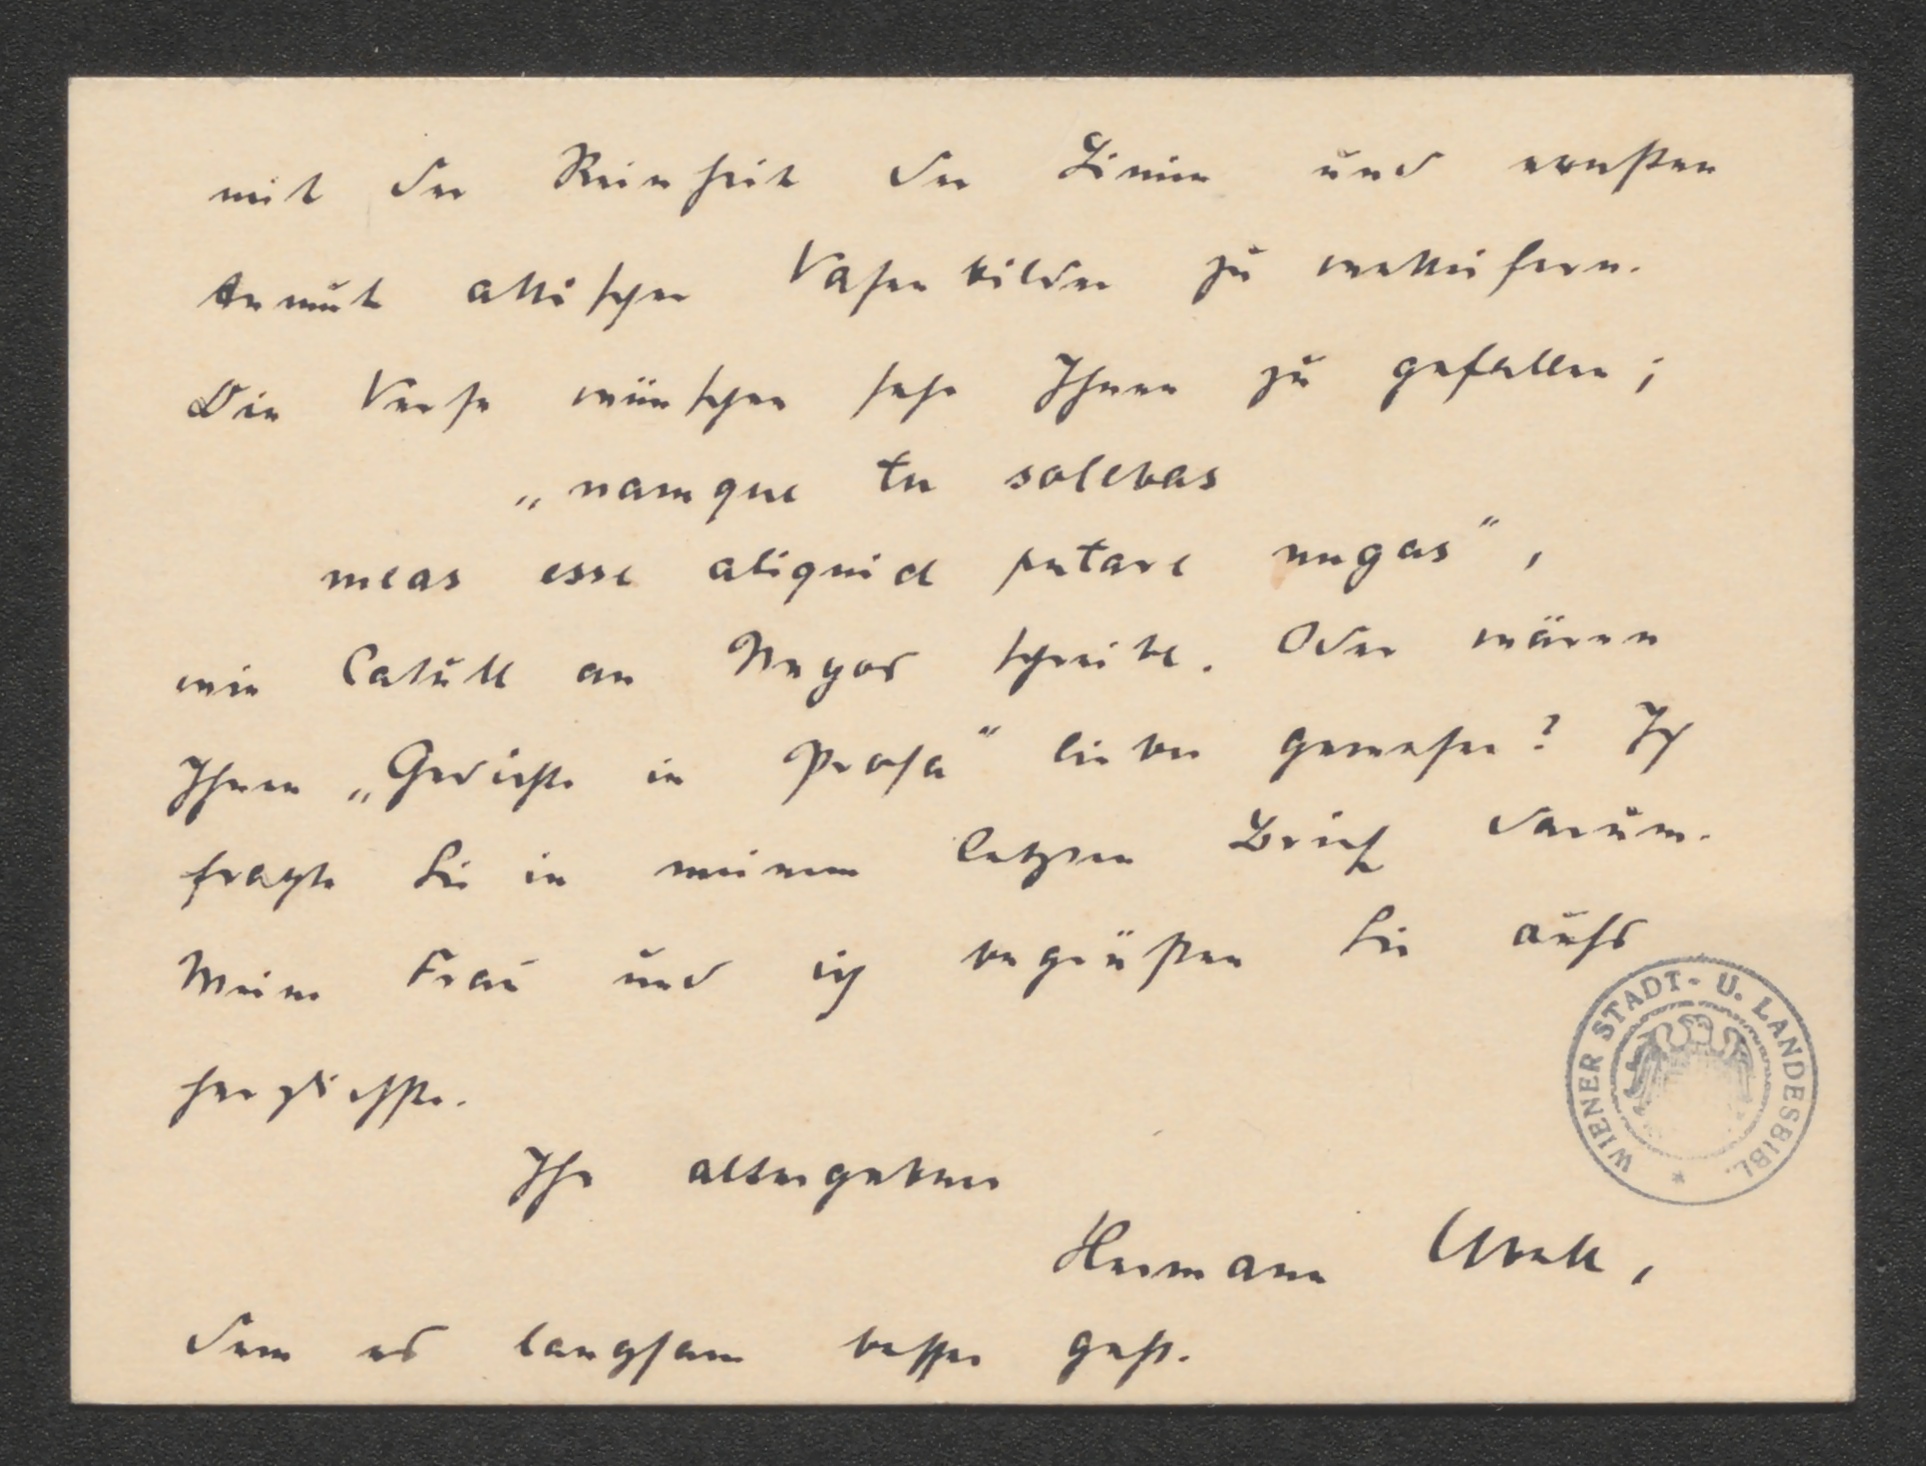 mit der Reinheit der Linien und ernsten
Anmut attischer Vasenbilder zu wetteifern.
Die Verse wünschen sehr Ihnen zu gefallen;
„namque tu solebas
meas esse aliquid putare nugas“,
wie Catull an Nepos schreibt. Oder wären
Ihnen „Gedichte in Prosa“ lieber gewesen? Ich
fragte Sie in meinem letzten Brief darum.
Meine Frau und ich begrüßen Sie aufs
herzlichste.
Ihr altergebener
Hermann Ubell,
dem es langsam besser geht.
WIENER STADT- U. LANDESBIBL.